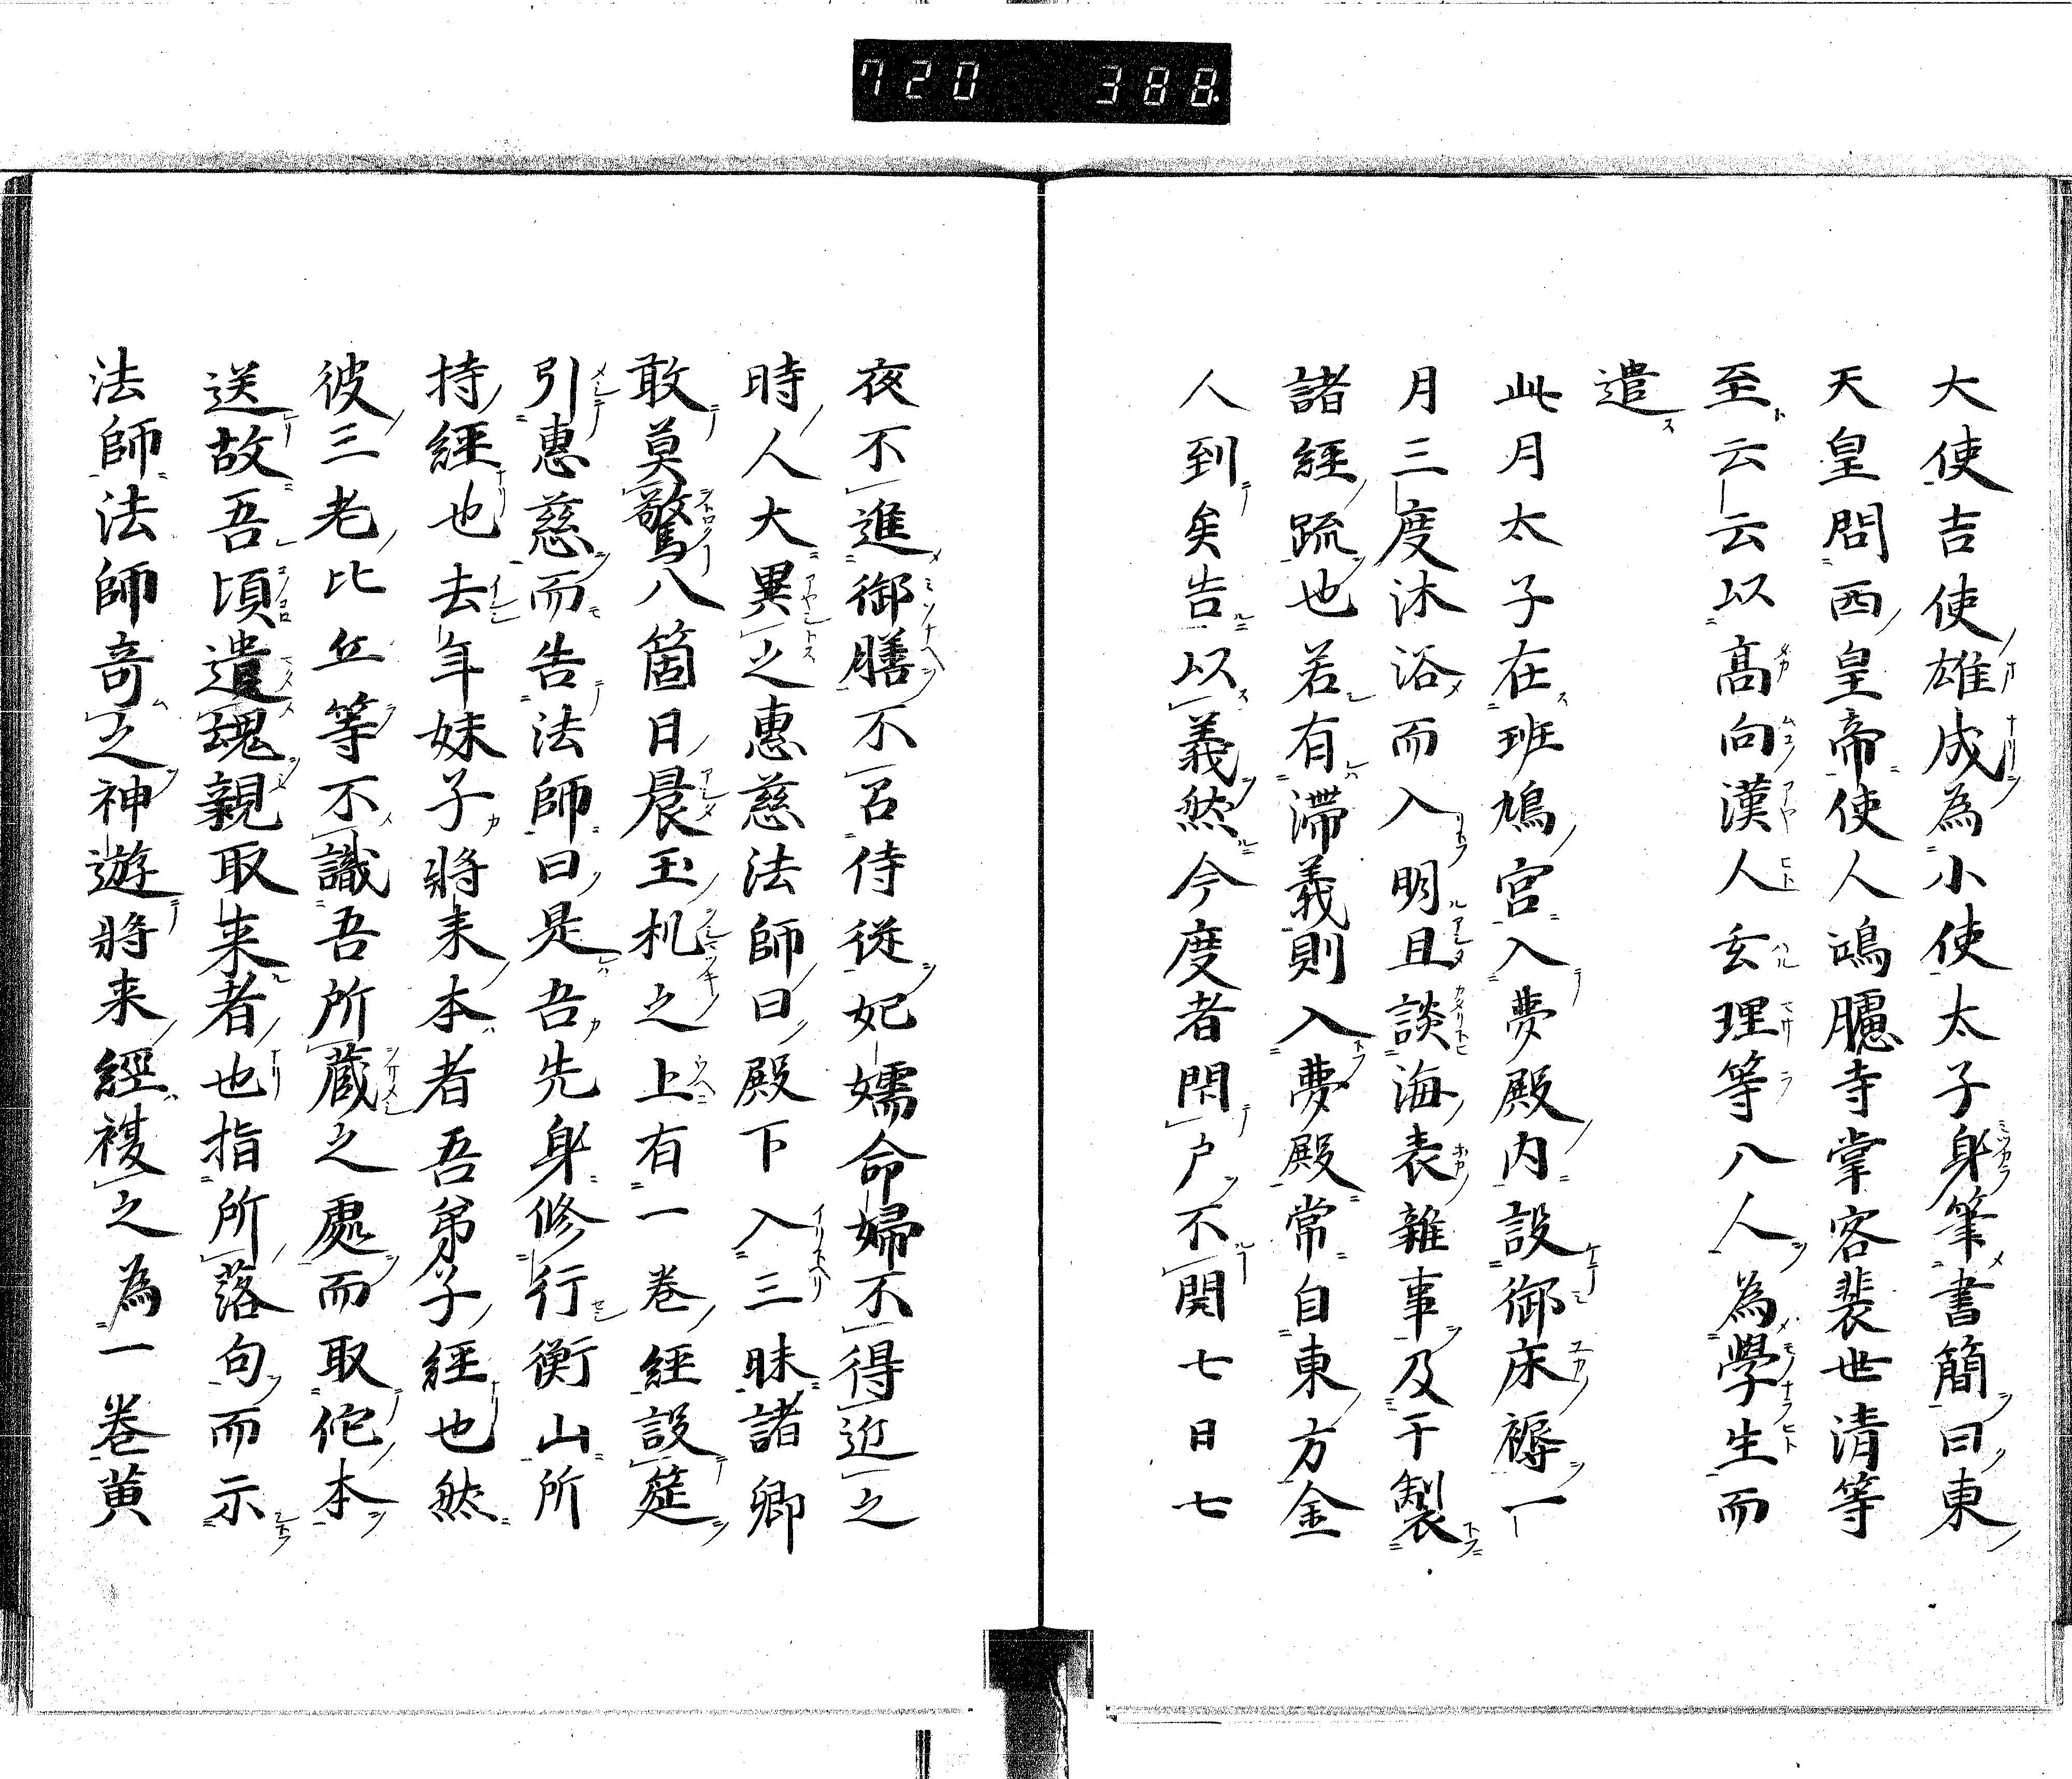 720 388
大使吉使雄成為小使太子身筆書簡曰東
天皇問西皇帝使人鴻臚寺掌客裴世清等
至云云以高向漢人玄理等八人為學生而
遣
此月太子在班鳩宮入夢殿內設御床褥一
月三度沐浴而入明旦談海表雜事及于製
諸經疏也若有滯義則入夢殿常自東方金
人到矣告以義然今度者閇戶不開七日七
夜不進御膳不召侍從妃嬬命婦不得近之
時人大異之惠慈法師曰殿下入三昧諸卿
敢莫驚八箇日晨玉机之上有一卷經設筵
引惠慈而告法師曰是吾先身修行衡山所
持經也去年妹子將来本者吾弟子經也然
彼三老比丘等不識吾所藏之處而取佗本
送故吾頃遣魂親取来者也指所落句而示
法師法師奇之神遊將来經複之為一卷黄